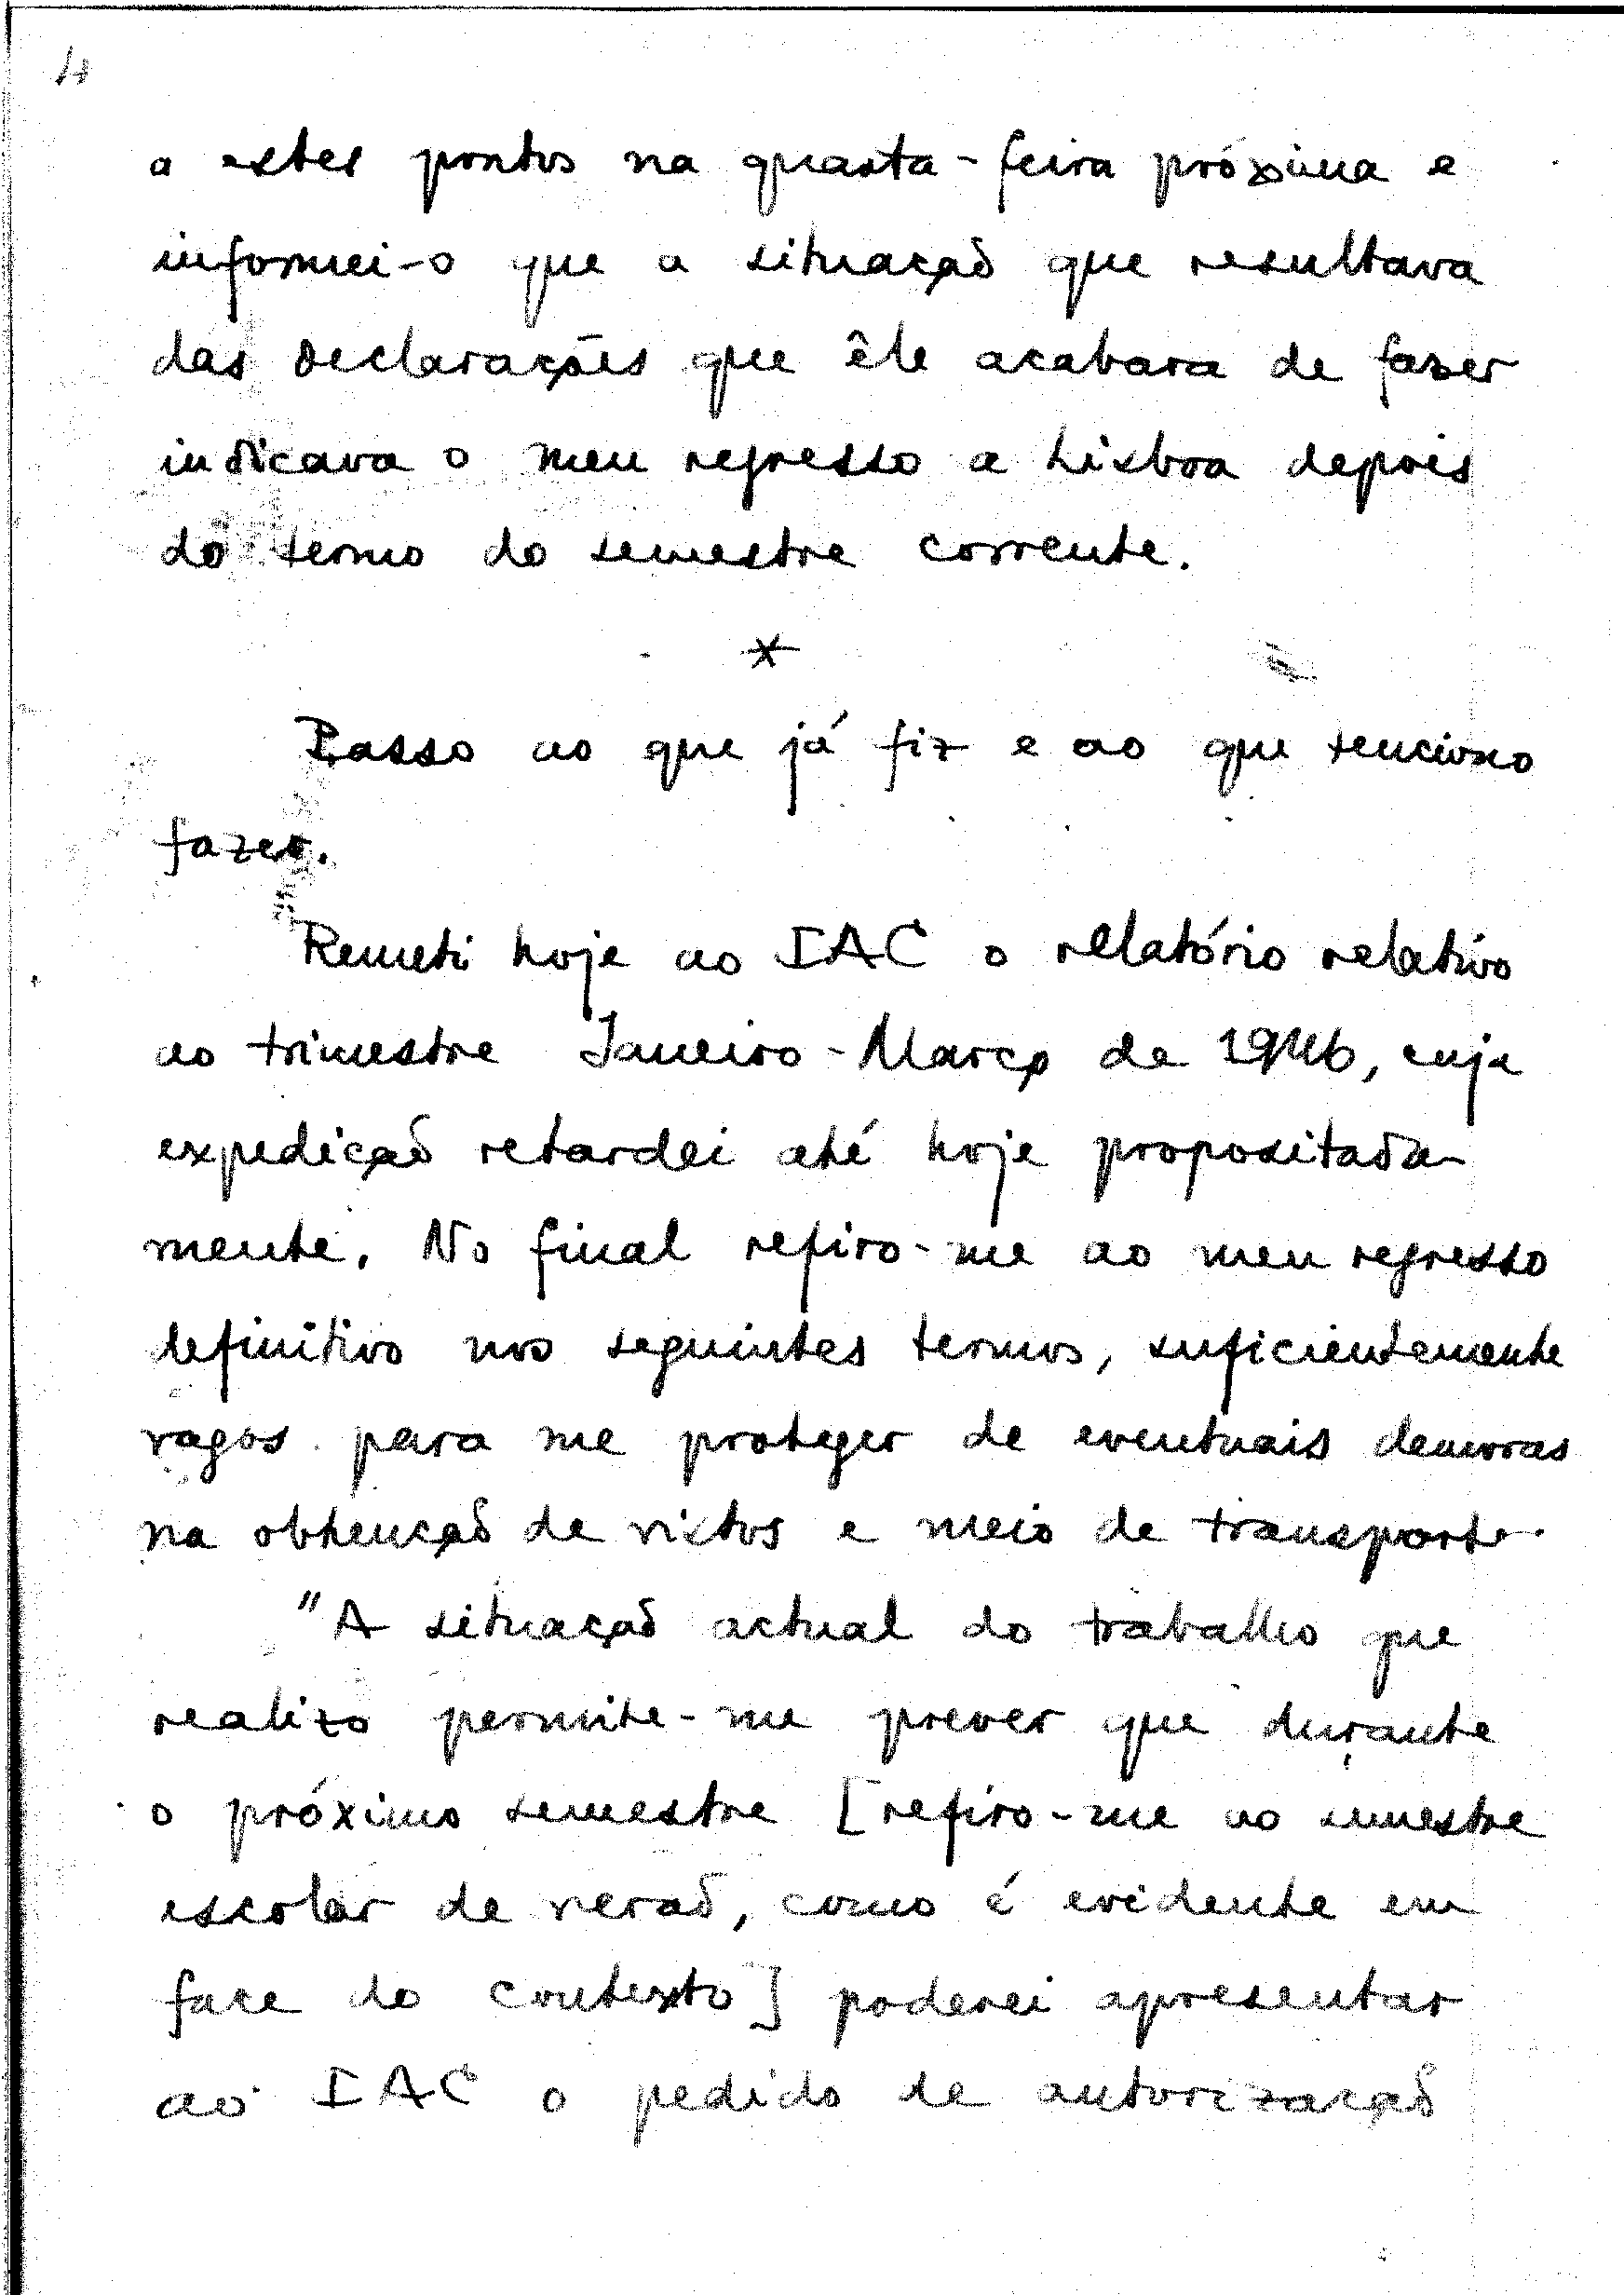 4
a estes pontos na quarta-feira próxima e
informei-o que a situação que resultava
das declarações que êle acabara de fazer
indicava o meu regresso a Lisboa depois
do termo do semestre corrente.
*
Passo ao que já fiz e ao que tenciono
fazer.
Remeti hoje ao IAC o relatório relativo
ao trimestre Janeiro-Março de 1946, cuja
expedição retardei até hoje propositada-
mente. No final refiro-me ao meu regresso
definitivo nos seguintes termos, suficientemente
vagos para me proteger de eventuais demoras
na obtenção de vistos e meio de transporte.
"A situação actual do trabalho que
realizo permite-me prever que durante
o próximo semestre [refiro-me ao semestre
escolar de verão, como é evidente em
face do contexto] poderei apresentar
ao IAC o pedido de autorização